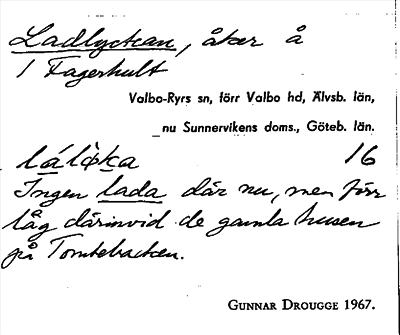 Ladlyckan, åker å
1 Fagerhult
Valbo-Ryrs sn, förr Valbo hd, Älvsb. län,
nu Sunnervikens doms., Göteb. län.
lálø̀ka 16
Ingen lada där nu, men förr
låg därinvid de gamla husen
på Tomtebacken.
GUNNAR DROUGGE 1967.